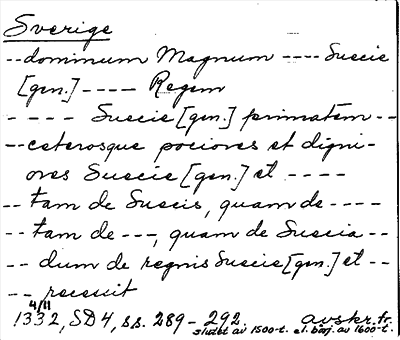 Sverige
-- dominum Magnum ---- Suecie
[gen.] ---- Regem
---- Suecie [gen.] primatem --
-- ceterosque pociores et digni-
ores Suecie [gen.] et ----
-- tam de Suecis, quam de ----
-- tam de ---, quam de Suecia --
-- dum de regnis Suecie [gen.] et --
-- recessit
4/11
1332, SD 4, s.s. 289-292 avskr. fr.
slutet av 1500-t. el. börj. av 1600-t.